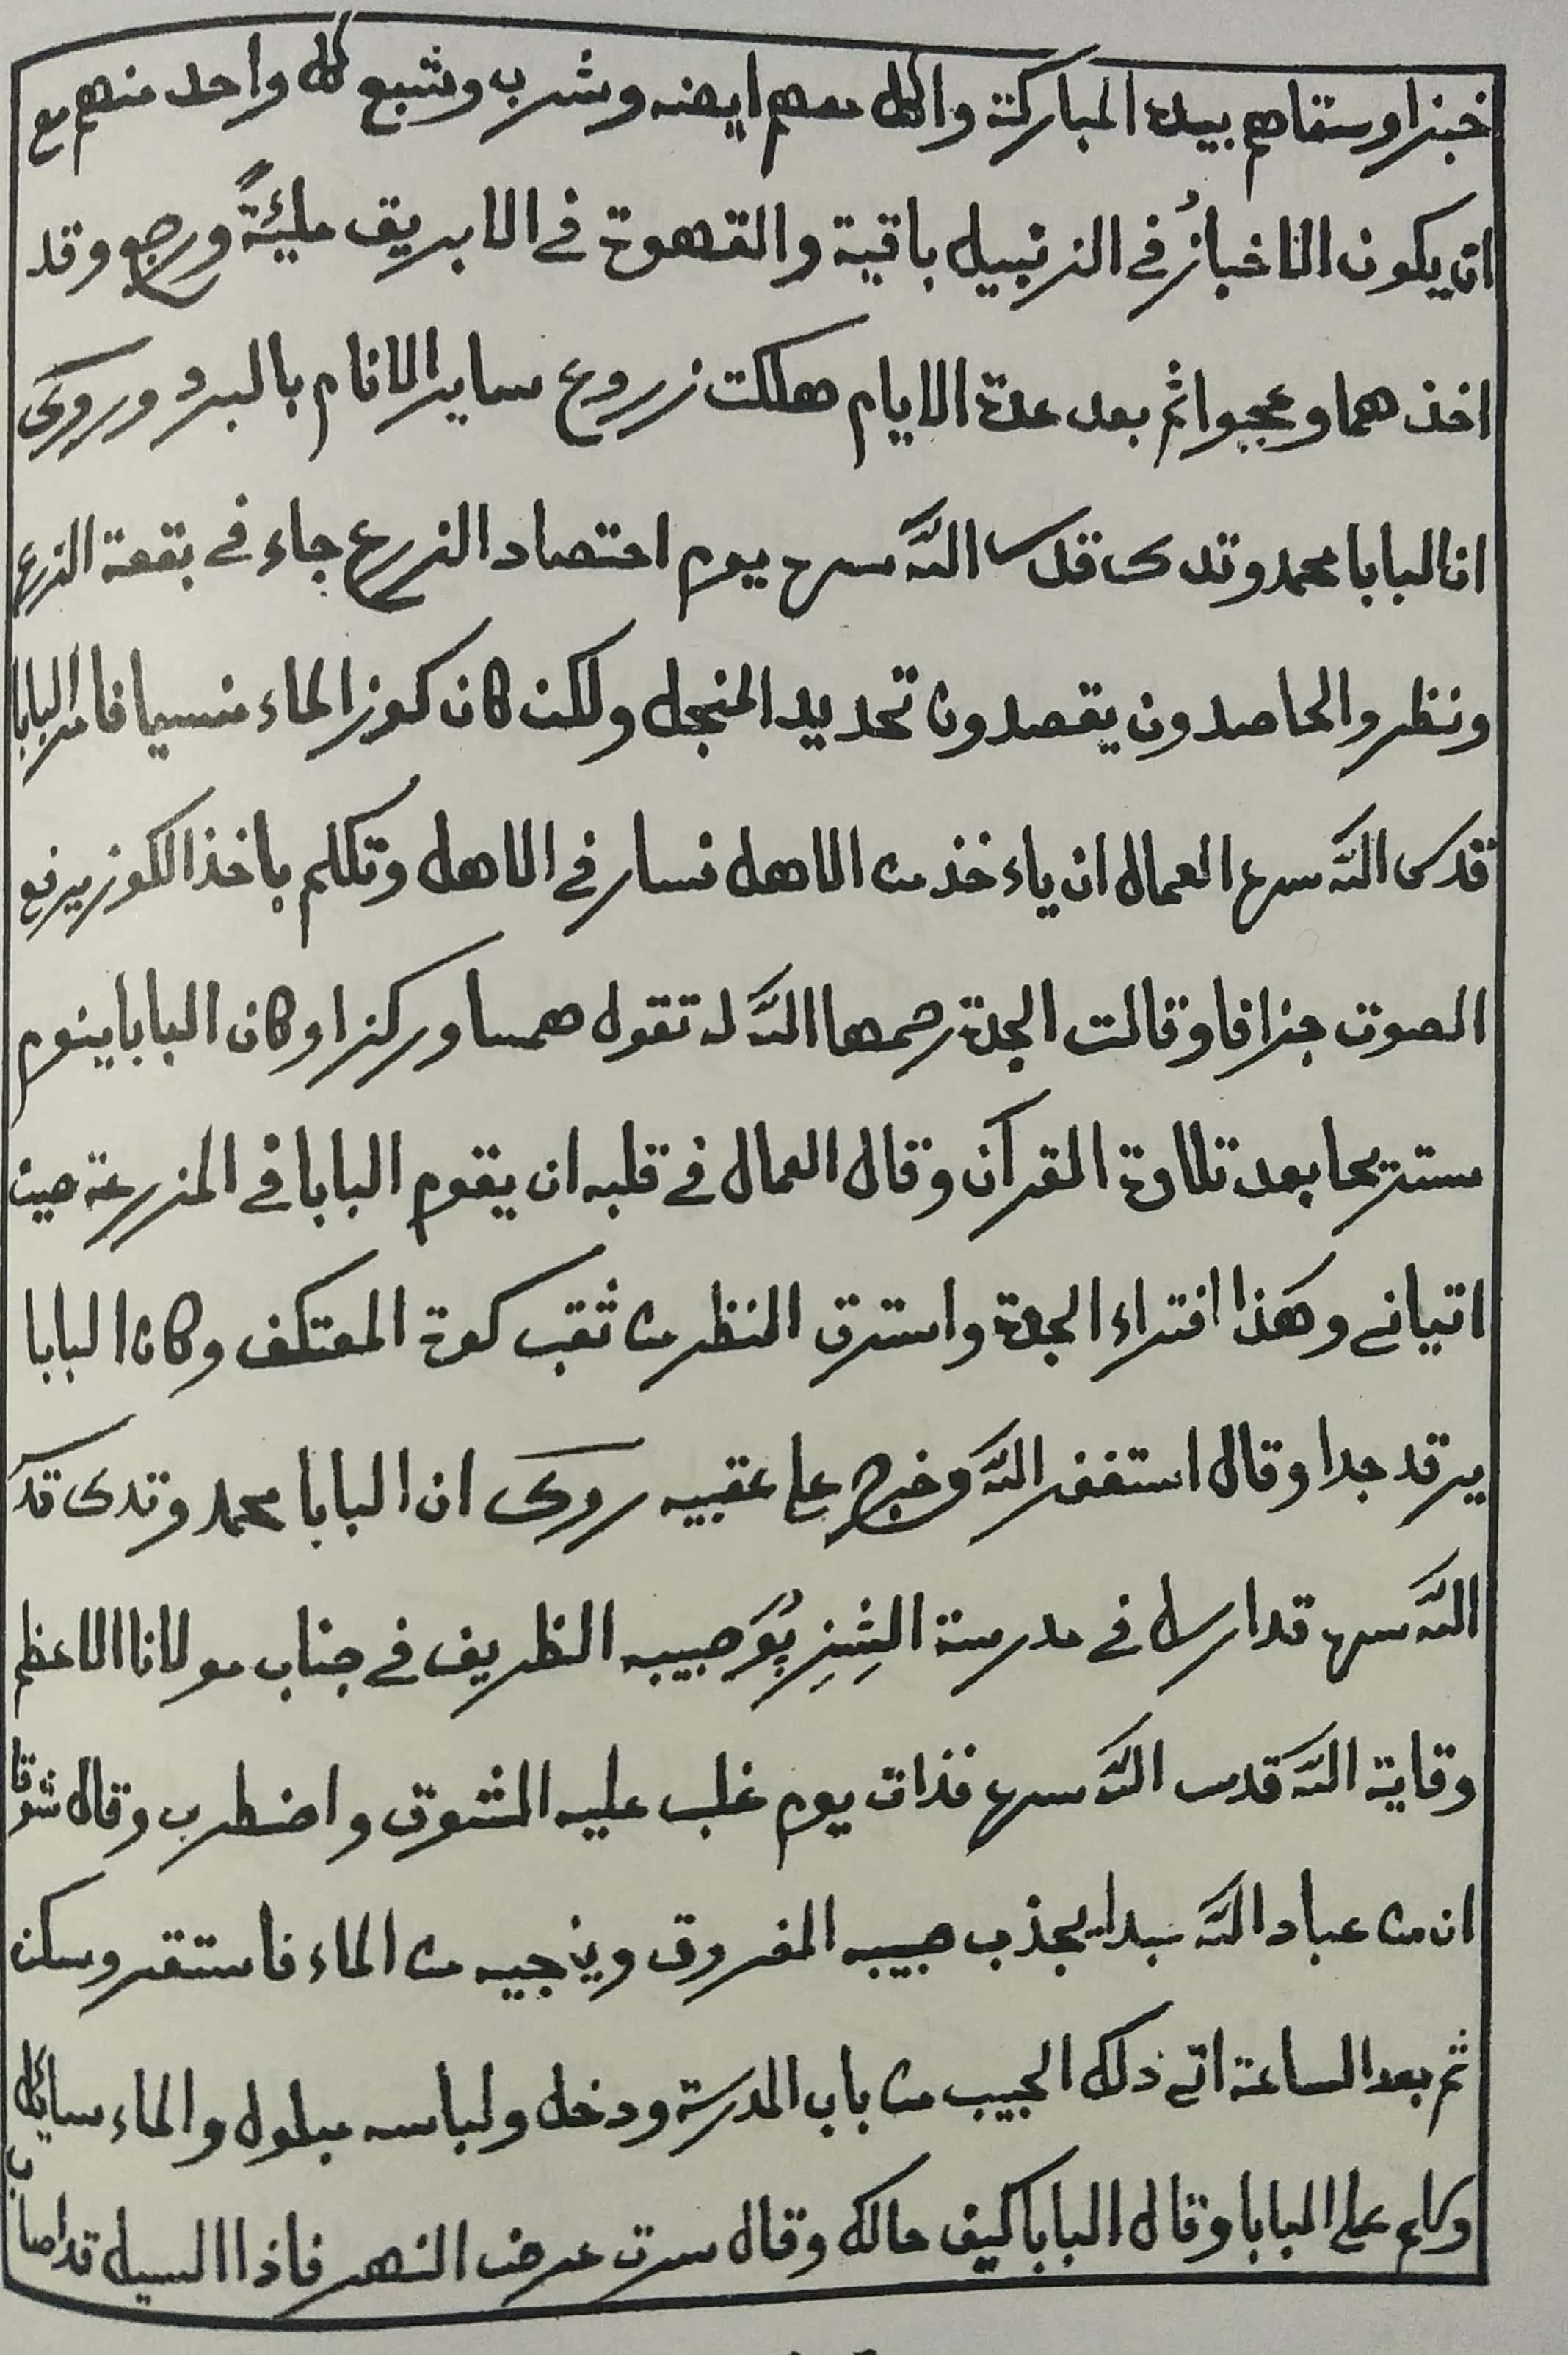 خبزا وسقاهم بيده المباركة واكل معهم ايضه وشرب وشبع كل واحد منهم مع
ان يكون الاخبازُ في الزنبيل باقية والقهوة في الابريق مليئةً ورجع وقد
اخذ هما وعجبوا ثم بعد عدة الايام هلكت زروع ساير الانام بالبرد وروى
ان البابا محمد وتدى قدس اللّه سره يوم احتصاد الزرع جاء في بقعة الزرع
ونظر والحاصدون يقصدون تحديد المنجل ولكن كان كوز الماء منسيا فامر البابا
قدس اللّه سره العمال ان ياءخذ من الاهل فسار في الاهل وتكلم باخذ الكوز يرفع
الصوت جزافا وقالت الجدة رحمها اللّه له تقول همسا وركزا وكان البابا ينوم
ستريحا بعد تلاوة القرآن وقال العمال في قلبه ان يقوم البابا في المزرعة حين
اتياني وهذا افتراء الجدة واسترق النظر من ثقب كوة المعتكف وكان البابا
يرقد جدا وقال استغفر اللّه وخرج على عقبيه روى ان البابا محمد وتدى قد
اللّه سره قد ارسل في مدرسة الشِنِزِ بُوَ حبيبه الظريف في جناب مولانا الاعظم
وقاية اللّه قدس اللّه سره فذات يوم غلب عليه الشوق واضطرب وقال شوقا
ان من عباد اللّه سيدا يجذب حبيبه المغروق وينجيه من الماء فاستقر وسكن
ثم بعد الساعة اتى ذلك الحبيب من باب المدرسة ودخل ولباسه مبلول والماء سايل
على البابا وقال البابا كيف حالك وقال سرت عرض النهر فاذا السيل قد اصاب